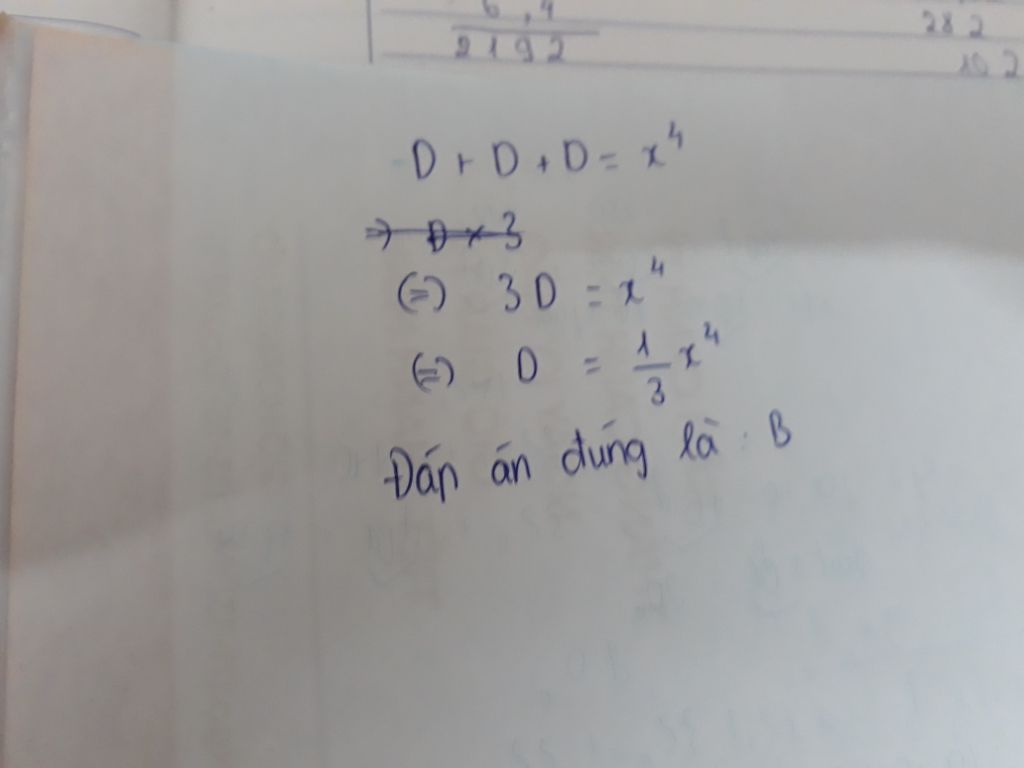 6,4
282
2192
10 2
D + D + D = x⁴
⇒ D × 3
(=) 3D = x⁴
(=) D = 1/3 x⁴
Đáp án đúng là: B